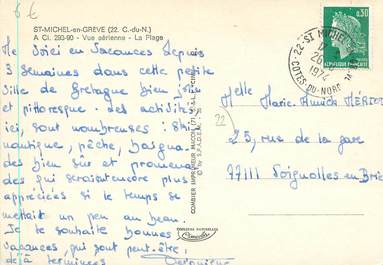 6 €
ST-MICHEL-en-GRÈVE (22. C.-du-N.)
A Ci. 293-90 - Vue aérienne - La Plage
Me voici en vacances depuis
3 semaines dans cette petite
ville de Bretagne bien jolie
et pittoresque. des activités
ici, sont nombreuses : ski
nautique, pêche, baignade
bien sûr et promenades
qui seraient encore plus
appréciées si le temps se
mettait un peu au beau.
Je te souhaite bonnes
vacances, qui sont peut-être,
déjà terminées
Véronique
COMBIER IMPRIMEUR MACON
S.P.A.D.E.M.
COULEURS NATURELLES
Cimcolor
22
22-ST MICHEL
26
1974
COTES-DU-NORD
0,50
REPUBLIQUE FRANÇAISE
Melle Marie-Annick
25, rue de la gare
77111 Soignolles-en-Brie